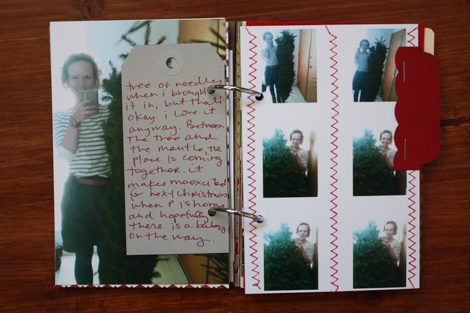 tree of needles
when i brought
it in, but that's
okay. i love it
anyway. Between
the tree and
the mantle, the
place is coming
together. it
makes me
for next Christmas
when P is home
and hopefully
there is a baby
on the way.